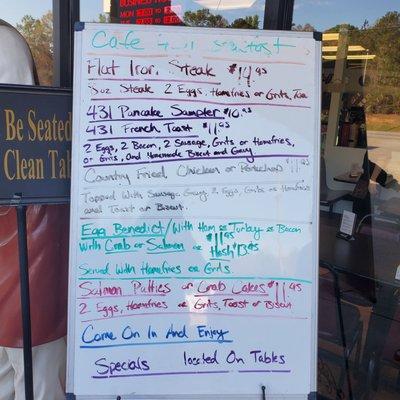 BUSINESS HO
MON
Cafe 431 Breakfast
Flat Iron Steak $14.95
5oz Steak 2 Eggs, Homefries or Grits, Toa
431 Pancake Sampler $10.95
431 French Toast $11.95
2 Eggs, 2 Bacon, 2 Sausage, Grits or Homefries,
or Grits, And Homemade Biscuit and Gravy
Country Fried Chicken or Porkchop $11.95
Topped With Sausage Gravy 2 Eggs, Grits or Homefries
and Toast or Biscuit.
Egg Benedict/With Ham or Turkey or Bacon
$11.95
With Crab or Salmon or Hash $13.95
Served With Homefries or Grits.
Salmon Patties or Crab Cakes $11.95
2 Eggs, Homefries or Grits, Toast or Biscuit
Come On In And Enjoy
Specials located On Tables
Be Seated
Clean Tab